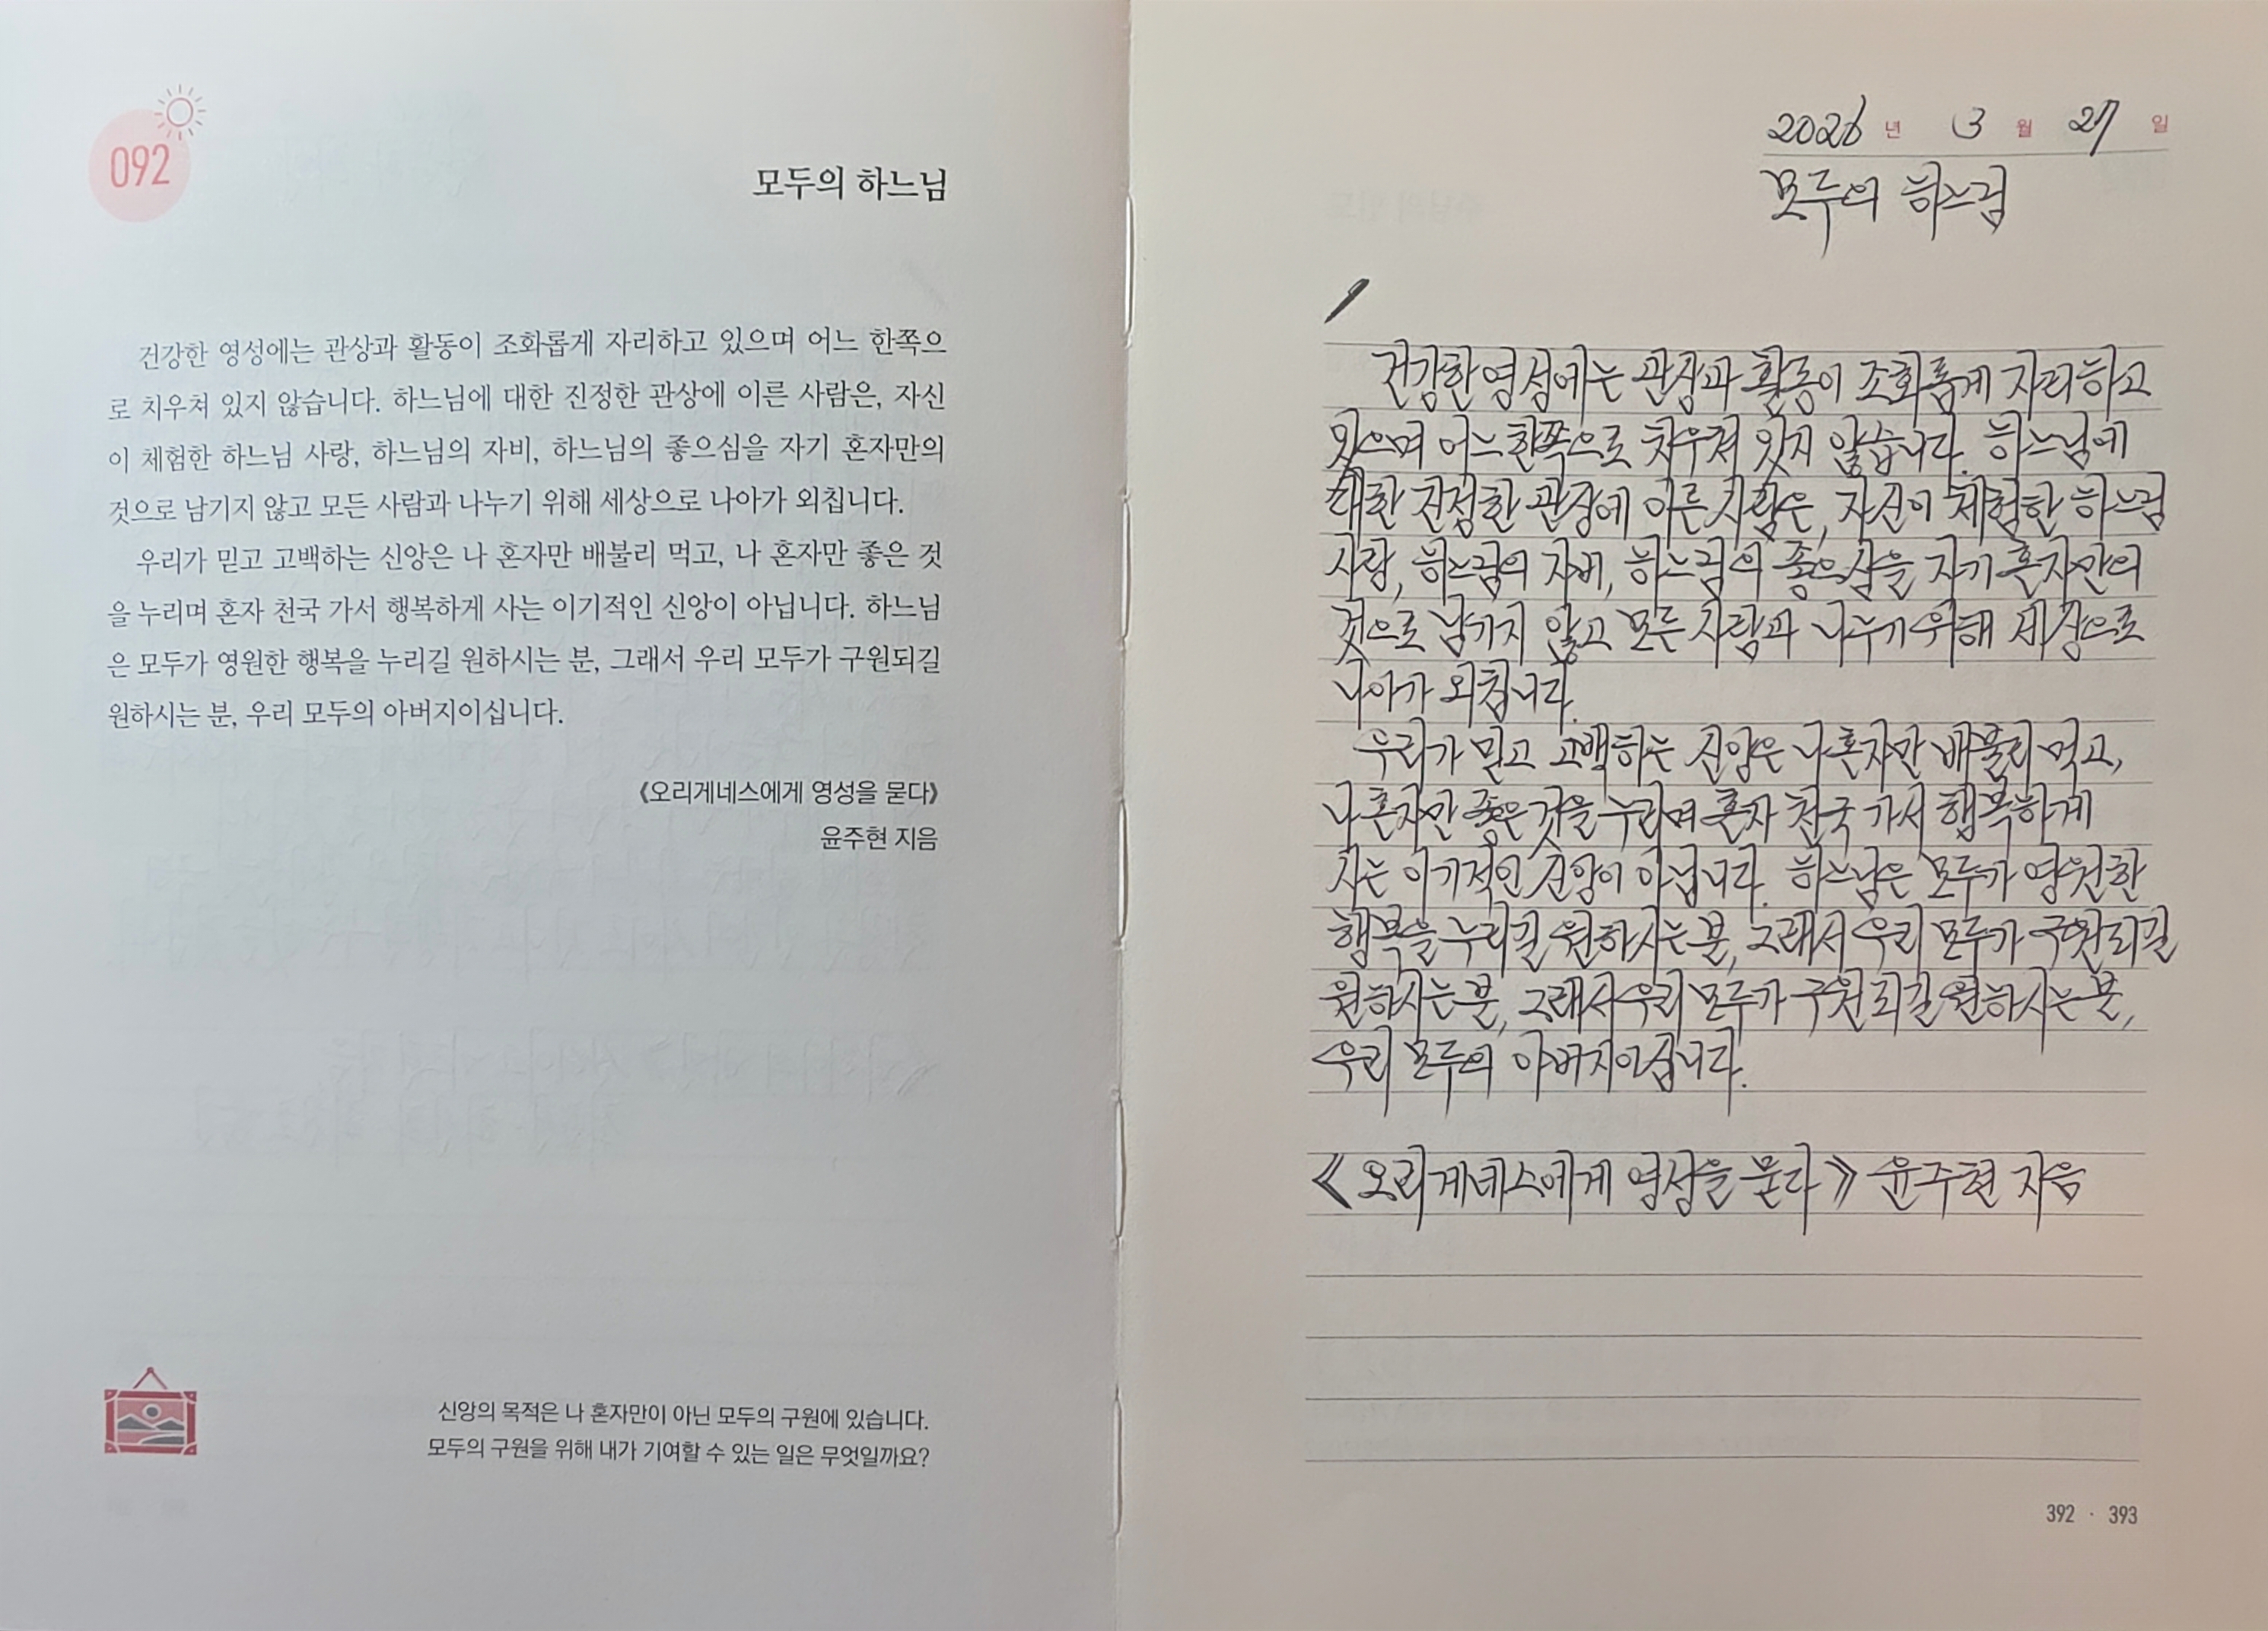 092
모두의 하느님
건강한 영성에는 관상과 활동이 조화롭게 자리하고 있으며 어느 한쪽으
로 치우쳐 있지 않습니다. 하느님에 대한 진정한 관상에 이른 사람은, 자신
이 체험한 하느님 사랑, 하느님의 자비, 하느님의 좋으심을 자기 혼자만의
것으로 남기지 않고 모든 사람과 나누기 위해 세상으로 나아가 외칩니다.
우리가 믿고 고백하는 신앙은 나 혼자만 배불리 먹고, 나 혼자만 좋은 것
을 누리며 혼자 천국 가서 행복하게 사는 이기적인 신앙이 아닙니다. 하느님
은 모두가 영원한 행복을 누리길 원하시는 분, 그래서 우리 모두가 구원되길
원하시는 분, 우리 모두의 아버지이십니다.
《오리게네스에게 영성을 묻다》
윤주현 지음
신앙의 목적은 나 혼자만이 아닌 모두의 구원에 있습니다.
모두의 구원을 위해 내가 기여할 수 있는 일은 무엇일까요?
2026년 3월 27일
모두의 하느님
건강한 영성에는 관상과 활동이 조화롭게 자리하고
있으며 어느 한쪽으로 치우쳐 있지 않습니다. 하느님에
대한 진정한 관상에 이른 사람은, 자신이 체험한 하느님
사랑, 하느님의 자비, 하느님의 좋으심을 자기 혼자만의
것으로 남기지 않고 모든 사람과 나누기 위해 세상으로
나아가 외칩니다.
우리가 믿고 고백하는 신앙은 나 혼자만 배불리 먹고,
나 혼자만 좋은 것을 누리며 혼자 천국 가서 행복하게
사는 이기적인 신앙이 아닙니다. 하느님은 모두가 영원한
행복을 누리길 원하시는 분, 그래서 우리 모두가 구원되길
원하시는 분, 그래서 우리 모두가 구원되길 원하시는 분,
우리 모두의 아버지이십니다.
《오리게네스에게 영성을 묻다》 윤주현 지음
392 · 393